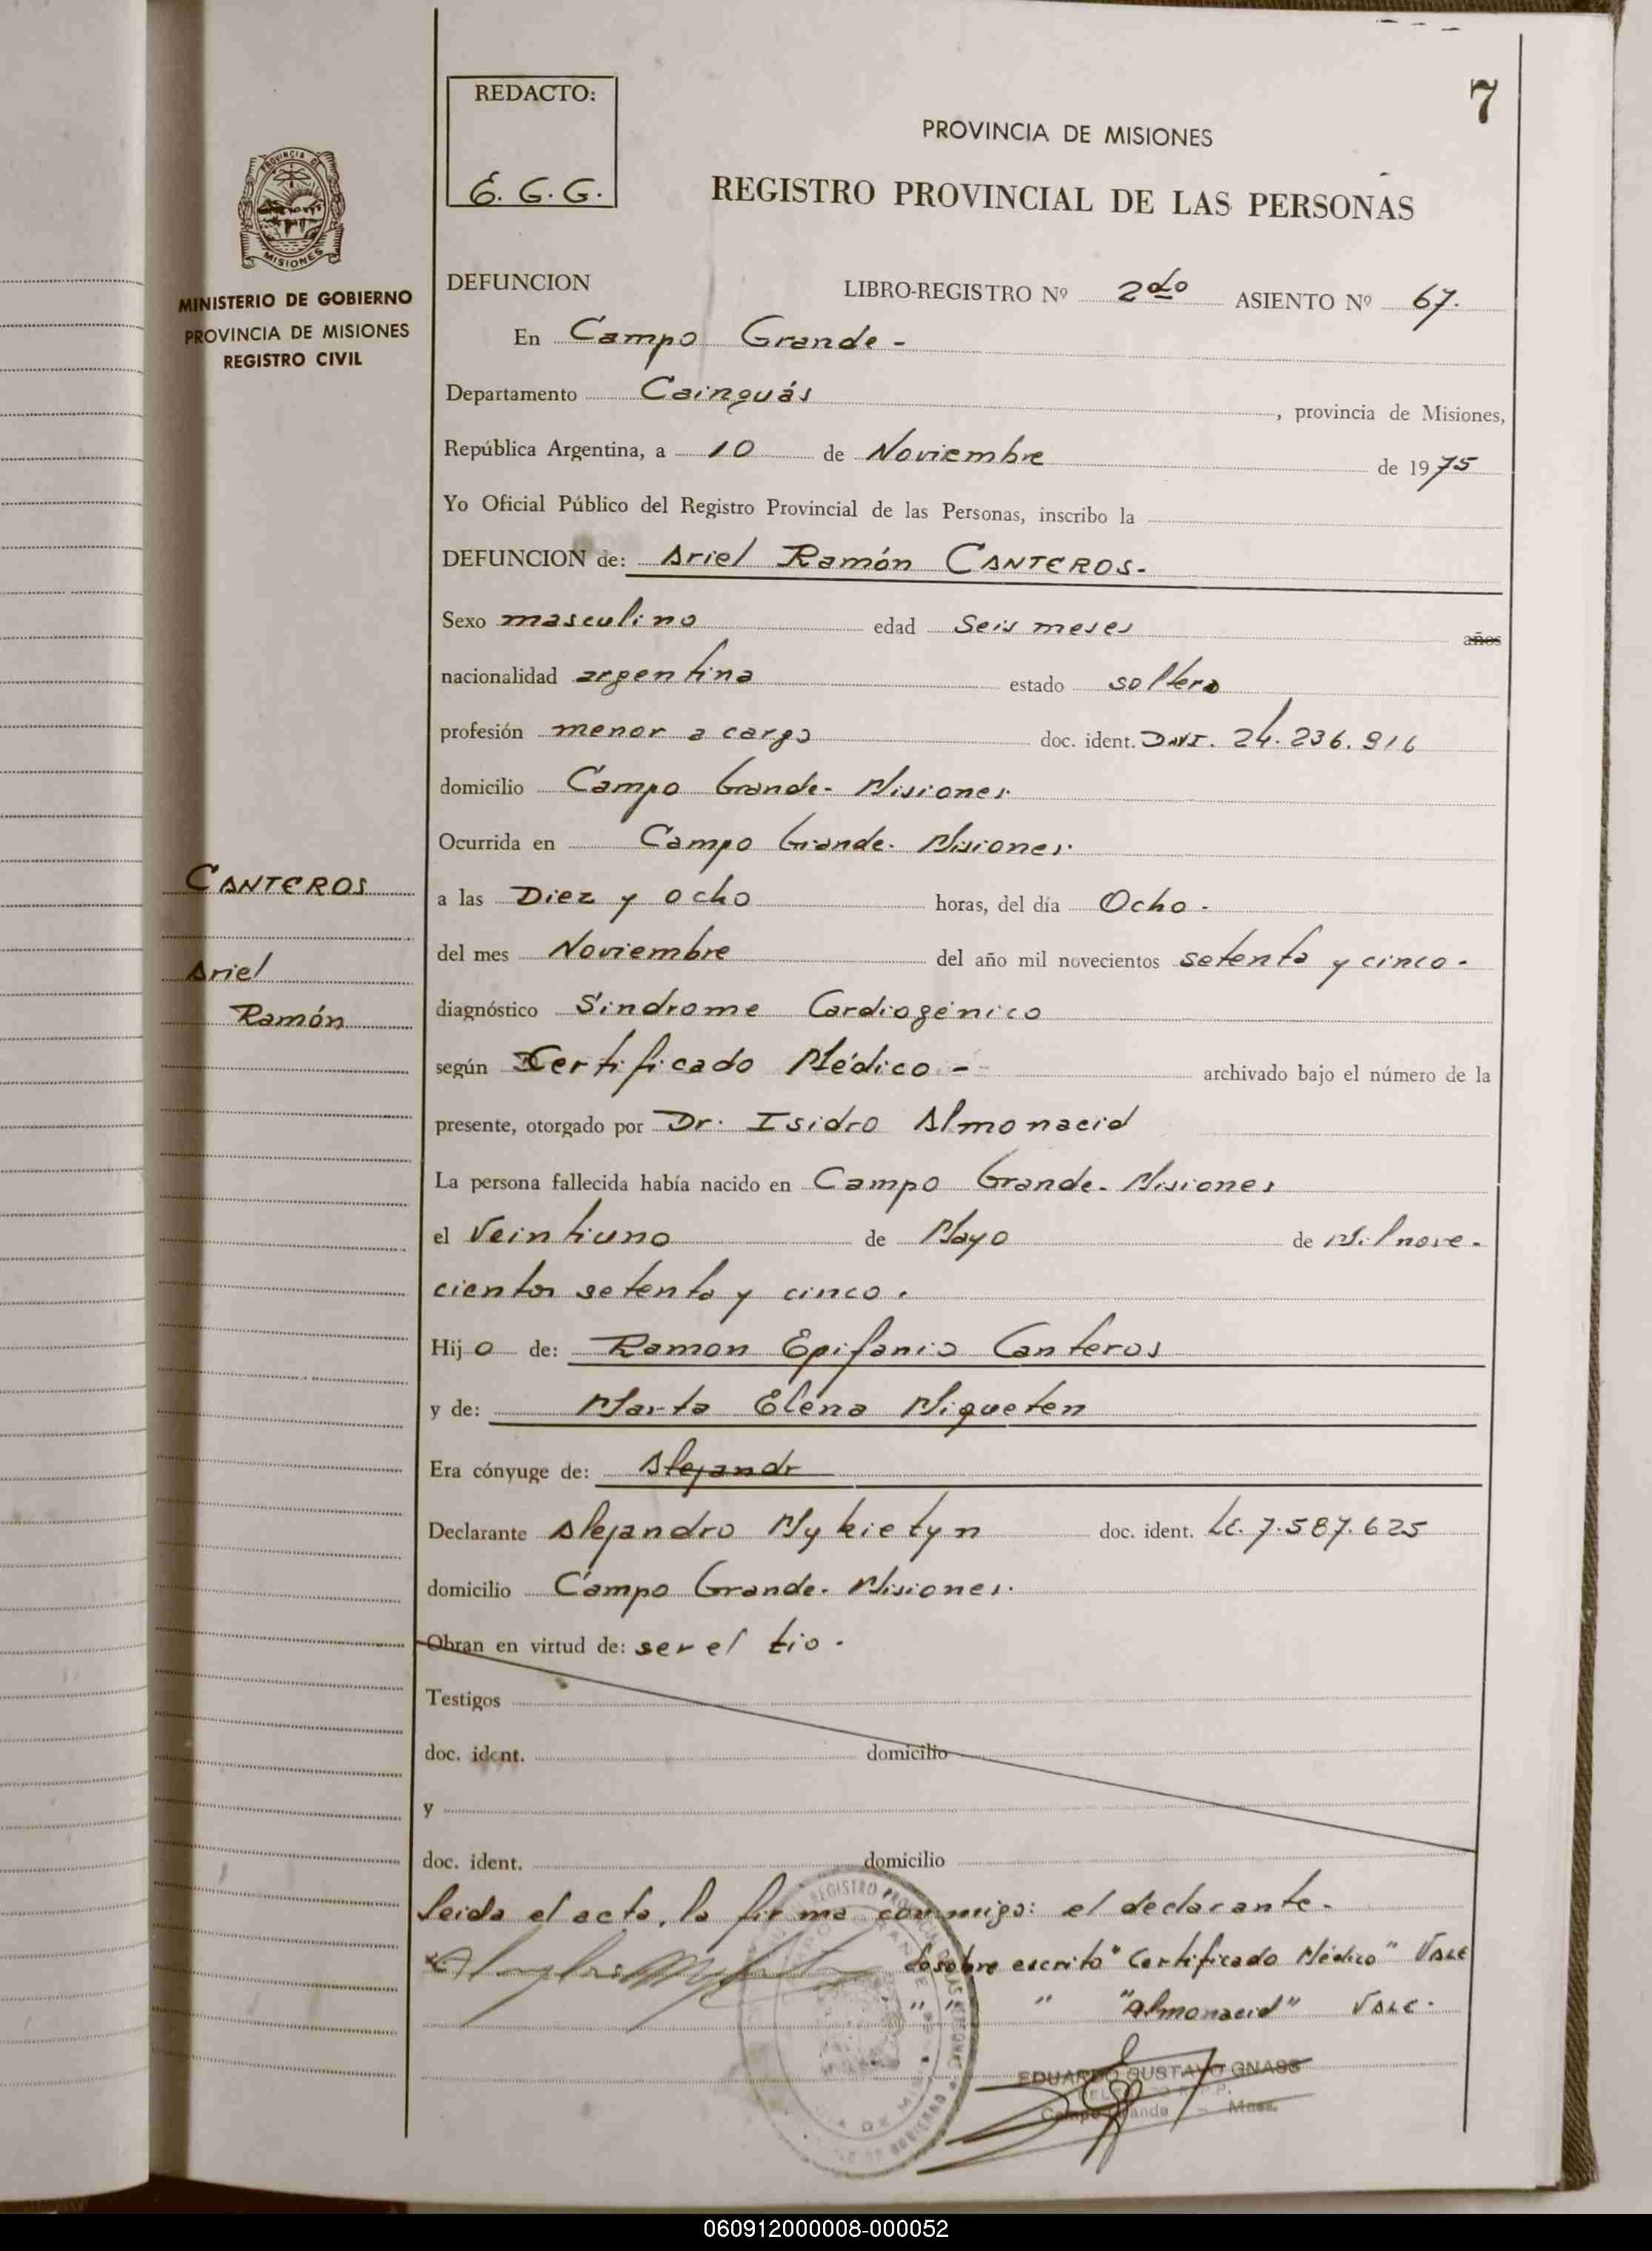 7
REDACTO:
E. G. G.
PROVINCIA DE MISIONES
REGISTRO PROVINCIAL DE LAS PERSONAS
PROVINCIA DE
MISIONES
MINISTERIO DE GOBIERNO
PROVINCIA DE MISIONES
REGISTRO CIVIL
DEFUNCION LIBRO-REGISTRO Nº 2do ASIENTO Nº 67.
En Campo Grande -
Departamento Cainguás, provincia de Misiones,
República Argentina, a 10 de Noviembre de 1975
Yo Oficial Público del Registro Provincial de las Personas, inscribo la
DEFUNCION de: Ariel Ramón CANTEROS.
Sexo masculino edad Seis meses años
nacionalidad argentina estado soltero
profesión menor a cargo doc. ident. D.N.I. 24.236.916
domicilio Campo Grande- Misiones.
Ocurrida en Campo Grande. Misiones.
CANTEROS
Ariel
Ramón
a las Diez y ocho horas, del día Ocho -
del mes Noviembre del año mil novecientos setenta y cinco -
diagnóstico Síndrome Cardiogénico
según Certificado Médico - archivado bajo el número de la
presente, otorgado por Dr. Isidro Almonacid
La persona fallecida había nacido en Campo Grande- Misiones
el Veintiuno de Mayo de Mil nove-
cientos setenta y cinco.
Hijo de: Ramon Epifanio Canteros
y de: Marta Elena Miqueten
Era cónyuge de: Alejandr
Declarante Alejandro Mykietyn doc. ident. L.E. 7.587.625
domicilio Campo Grande- Misiones.
Obran en virtud de: ser el tio -
Testigos
doc. ident. domicilio
y
doc. ident. domicilio
Leida el acta, la firma conmigo: el declarante.
Lo sobre escrito "Certificado Médico" VALE
" " " "Almonacid" VALE.
EDUARDO GUSTAVO GNASS
Campo Grande - Mnes.
060912000008-000052